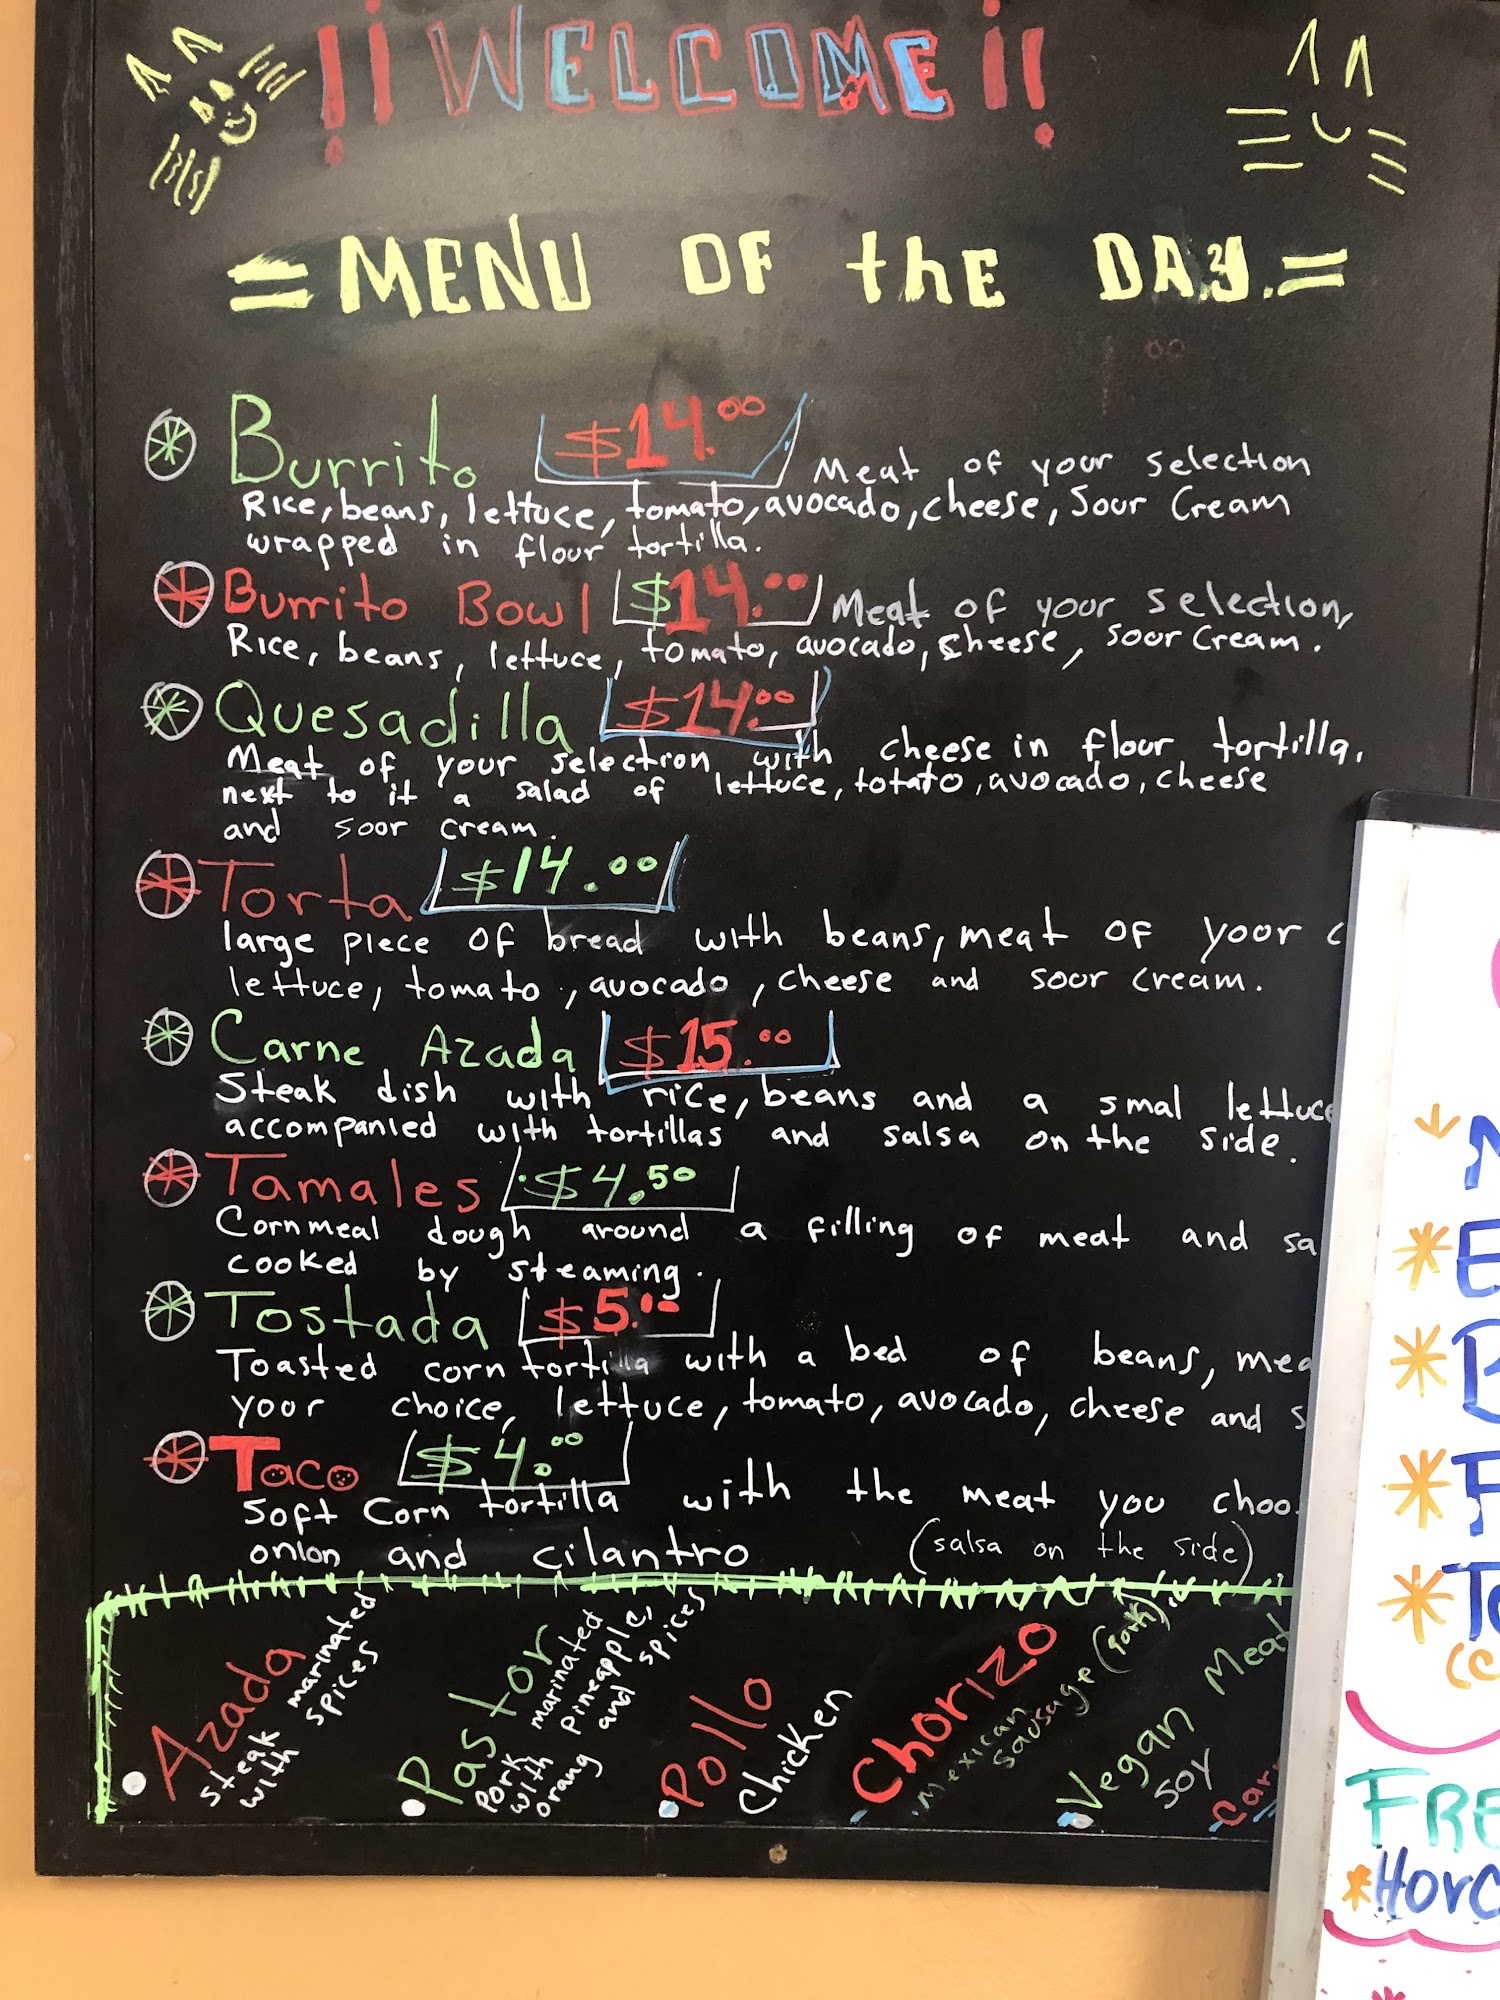 !! WELCOME !!
= MENU OF the DAY. =
Burrito $14.00 Meat of your selection
Rice, beans, lettuce, tomato, avocado, cheese, Sour Cream
wrapped in flour tortilla.
Burrito Bowl $14.00 Meat of your selection,
Rice, beans, lettuce, tomato, avocado, cheese, Sour Cream.
Quesadilla $14.00
Meat of your selection with cheese in flour tortilla.
next to it a salad of lettuce, totato, avocado, cheese
and soor cream.
Torta $14.00
large piece of bread with beans, meat of yoor c
lettuce, tomato, avocado, cheese and soor cream.
Carne Azada $15.00
Steak dish with rice, beans and a smal lettuce
accompanied with tortillas and salsa on the side.
Tamales $4.50
Cornmeal dough around a filling of meat and sa
cooked by steaming.
Tostada $5.--
Toasted corn tortilla with a bed of beans, mea
your choice, lettuce, tomato, avocado, cheese and s
Taco $4.00
Soft Corn tortilla with the meat you choo
onion and cilantro (salsa on the side)
Azada
steak marinated
with spices
Pastor
pork marinated
with pineapple,
orang and spices
Pollo
Chicken
Chorizo
Mexican
sausage (pork)
Vegan Meat
soy
Car
FRE
*HorC